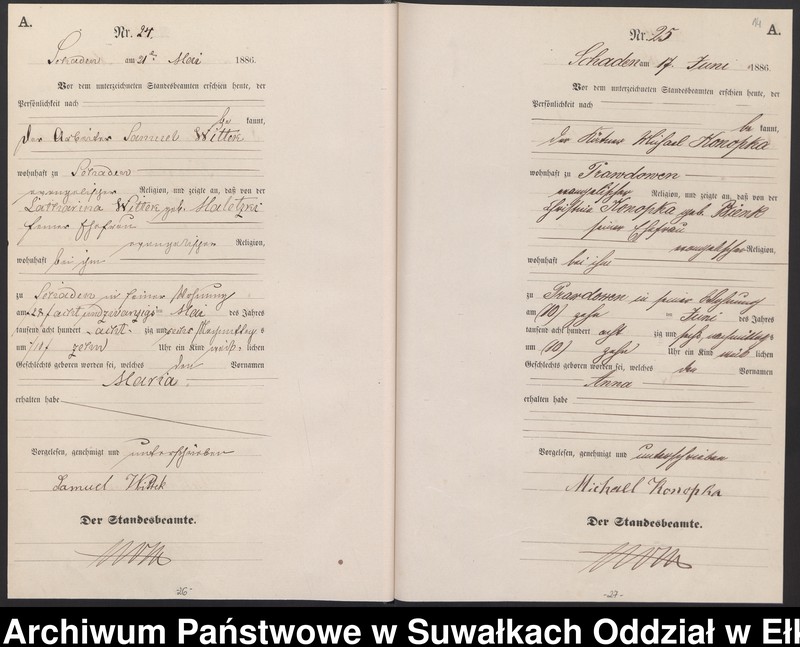 A.
Nr. 24.
am 21ten Mai 1886.
Vor dem unterzeichneten Standesbeamten erschien heute, der
Persönlichkeit nach
be kannt,
der Arbeiter Samuel Wittek
wohnhaft zu
evangelischer Religion, und zeigte an, daß von der
Catharina Wittek geb. Maletzki
seiner Ehefrau
evangelischer Religion,
wohnhaft bei ihm
zu in seiner Wohnung
am Mai des Jahres
tausend acht hundert acht- zig und sechs Vormittag s
um zehn Uhr ein Kind weib- lichen
Geschlechts geboren worden sei, welches den Vornamen
Maria
erhalten habe
Vorgelesen, genehmigt und unterschrieben
Samuel Wittek
Der Standesbeamte.
-26-
A.
Nr. 25
Schaden am 17. Juni 1886.
Vor dem unterzeichneten Standesbeamten erschien heute, der
Persönlichkeit nach
be kannt,
der Michael Konopka
wohnhaft zu Prawdowen
evangelischer Religion, und zeigte an, daß von der
Christine Konopka geb.
seiner Ehefrau
evangelischer Religion,
wohnhaft bei ihm
zu Prawdowen in seiner Wohnung
am (10) zehn ten Juni des Jahres
tausend acht hundert acht zig und sechs nachmittag s
um (10) zehn Uhr ein Kind weib lichen
Geschlechts geboren worden sei, welches den Vornamen
Anna
erhalten habe
Vorgelesen, genehmigt und unterschrieben
Michael Konopka
Der Standesbeamte.
-27-
Archiwum Państwowe w Suwałkach Oddział w Ełk